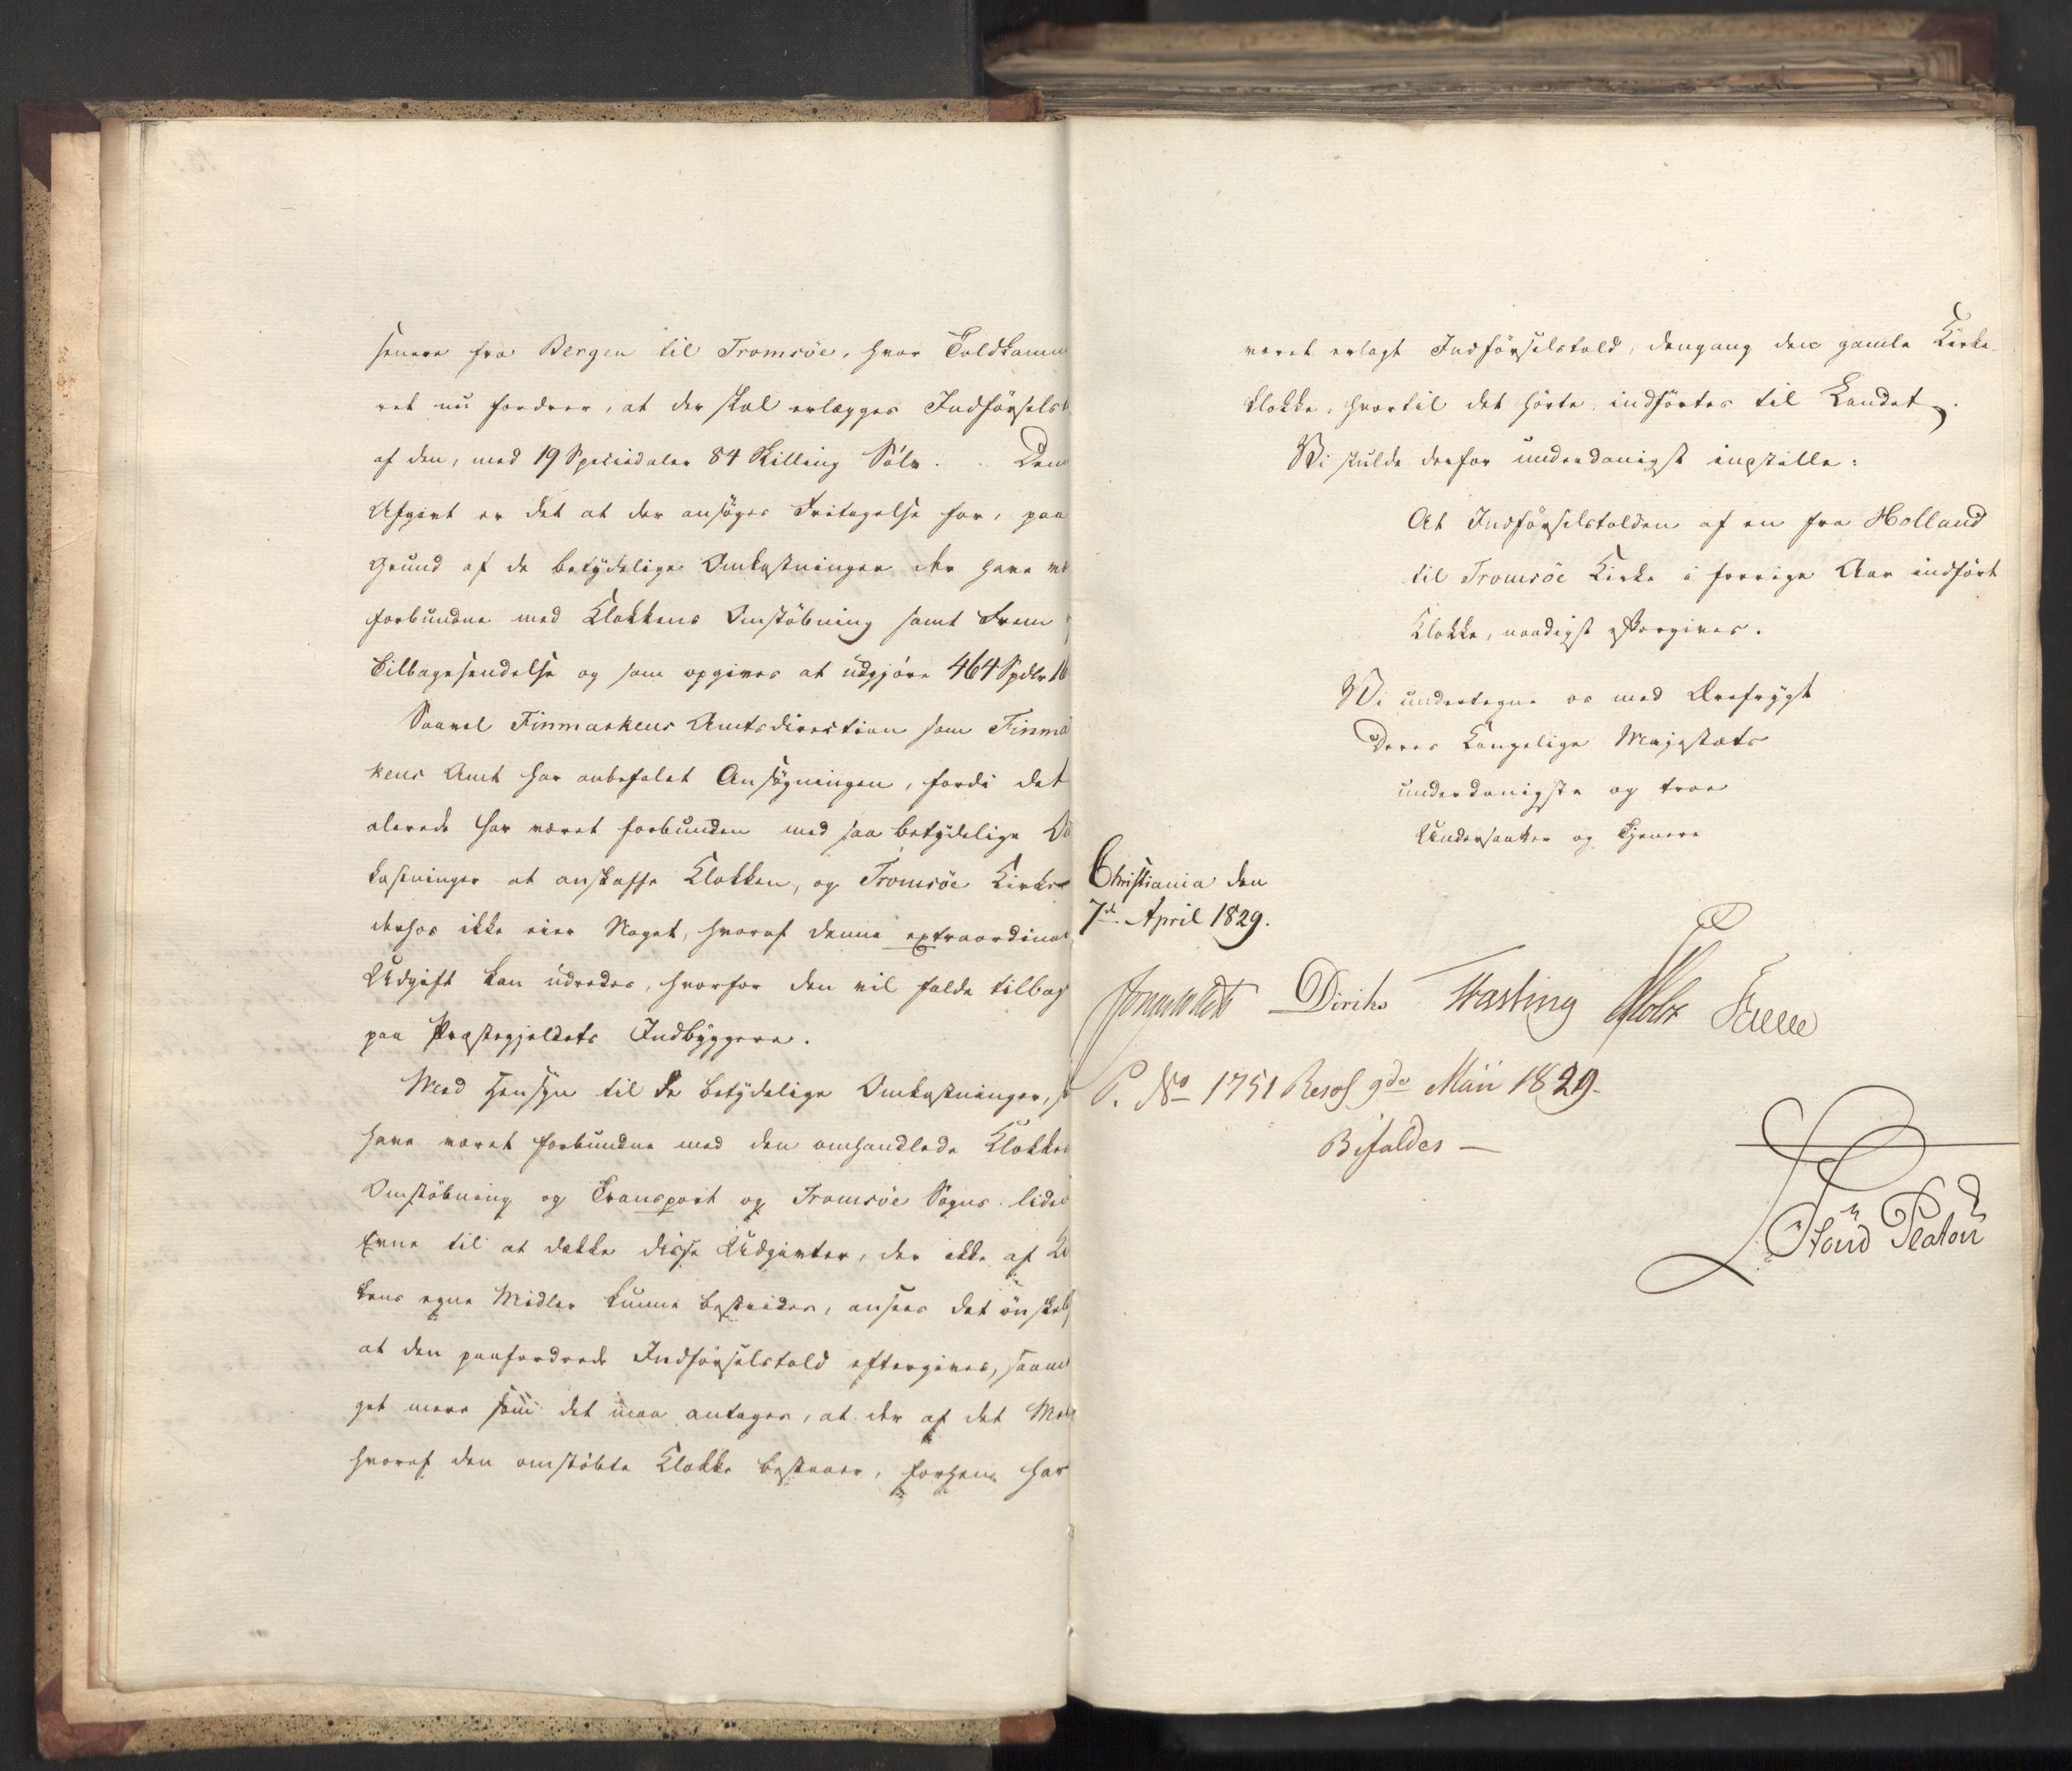 senere fra Bergen til Tromsöe, hvor Toldkamm
ret nu fordrer, at der skal erlægges Indförselst
af den, med 19 Speciedaler 84 Skilling Sölv. Den
Afgivt er det at der ansöges Fritagelse for, paa
Grund af de betydelige Omkostninger der have væ
forbundne med Klokkens Omstöbning samt Frem
Tilbagesendelse og som opgives at udgjöre 464 Spdlr 16
Saavel Finmarkens Amtsdirection som Finma
kens Amt har anbefalet Ansögningen, fordi det
alerede har været forbunden med saa betydelige Om
kostninger at anskaffe Klokken, og Tromsöe Kirke
derhos ikke eier Noget, hvoraf denne extraordinai
Udgift kan udredes, hvorfor den vil falde tilbag
paa Præstegjeldets Indbyggere.
Med Hensyn til de betydelige Omkostninger, s
have været forbundne med den omhandlede Klokkes
Omstöbning og Transport og Tromsöe Sogns lide
Evne til at dække disse Udgivter, der ikke af Ki
kens egne Midler kunne bestrides, ansees det önskel
at den paafordrede Indförselstold eftergives, saam
get mere som det maa antages, at der af det Me
hvoraf den omstöbte Klokke bestaaer, forhen har
været erlagt Indförselstold, dengang den gamle Kirke-
klokke, hvortil det hörte indförtes til Landet.
Vi skulde derfor underdanigst instille:
At Indförselstolden af en fra Holland
til Tromsöe Kirke i forrige Aar indfört
Klokke, naadigst eftergives.
Vi undertegne os med Ærefrygt
Deres Kongelige Majestæts
underdanigste og troe
Undersaatter og Tjenere
Christiania den
7de April 1829.
Diriks Fasting Holst
P. No 1751 Resol 9de Maii 1829.
Bifaldes —